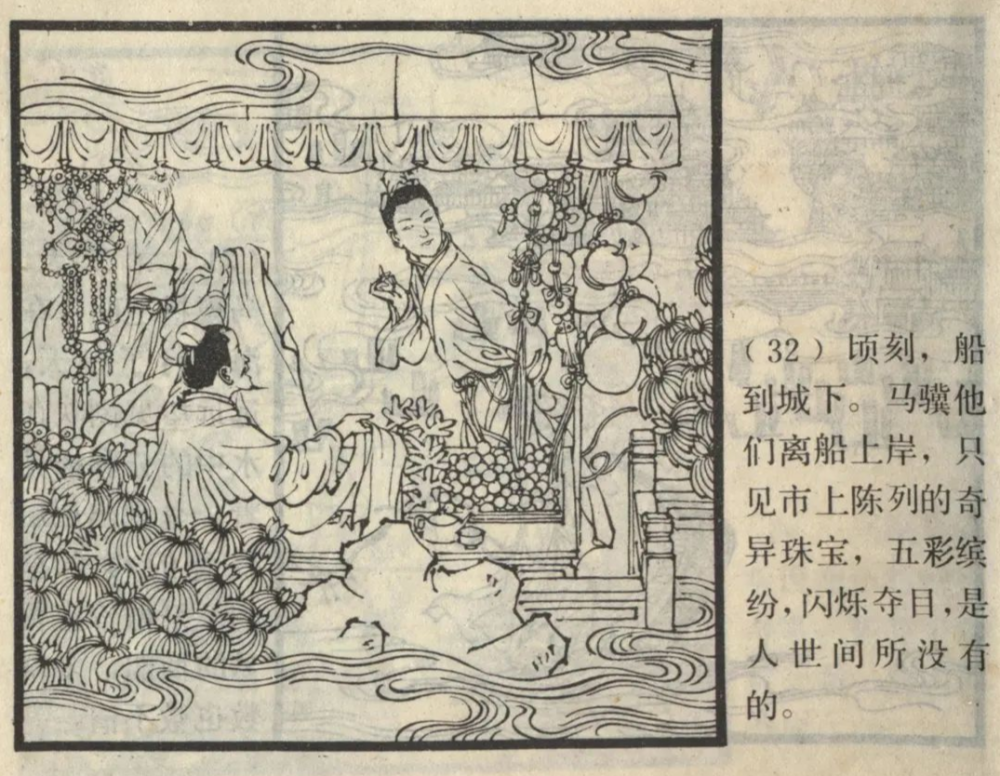 （32）顷刻，船
到城下。马骥他
们离船上岸，只
见市上陈列的奇
异珠宝，五彩缤
纷，闪烁夺目，是
人世间所没有
的。